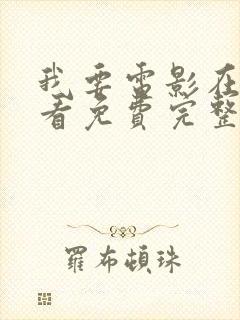 我要雷影在
看免费完整
羅布頓珠